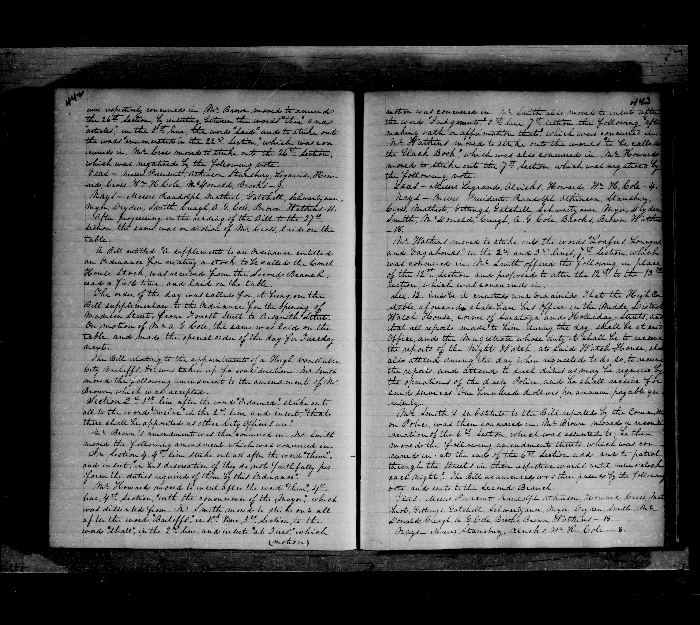 442
were respectively concurred in. Mr Brown moved to amend
the 26th section, by inserting between the words "then" and
articles", in the 8th line, the word "said" and to strike out
the words "enumerated in the 22nd section", which was con
curred in. Mr Cross moved to strike out the 26th section,
which was negatived by the following vote.
Yeas - Messrs President, Atkinson, Stansbury, Legrande, How
ard, Cross, Wm H. Cole, McDonald, Brooks - 9.
Nays - Messrs Randolph, Mathiot, Gatchell, Schwartzauer,
Myer, Dryden, Smith, Cragh, A. G. Cole, Brown, Watkins - 11.
After progressing in the reading of the Bill to the 27th
section the same was on motion of Mr Cross, laid on the
table.
A Bill entitled "A supplement to an Ordinance entitled
an Ordinance for creating a stock to be called the Court
House Stock, was received from the Second Branch,
read a first time, and laid on the table.
The order of the day was called for, it being on the
Bill supplementary to the Ordinance for the opening of
Madison Street, from Forrest Street to Aisquith Street.
On motion of Mr A. G. Cole, the same was laid on the
table, and made the special order of the day for Tuesday
next.
The Bill relating to the appointment of a High Constable
City Bailiffs, &c was taken up for consideration. Mr Smith
moved the following amendment to the amendments of Mr
Brown which was accepted.
Section 2nd 1st line after the word "Ordained" strike out
all to the word "twelve" in the 2nd line and insert "that
there shall be appointed as other City Officers are."
Mr Brown's amendment was then concurred in. Mr Smith
moved the following amendment which was concurred in.
In section 4, 4th line, strike out all after the word "them",
and insert, in his discretion if they do not faithfully per
form the duties required of them by this Ordinance.
Mr Howard moved to insert after the word "Thus", 4th
line, 4th section, "with the concurrence of the Mayor," which
was dissented from. Mr Smith moved to strike out all
after the word "Bailiffs", in 1st line, 5th section, to the
word "shall", in the 2nd line, and insert "at Large", which
(motion)
443
motion was concurred in. Mr Smith also moved to insert after
the word "Judgments" 5th line, 7th section, the following "after
making oath or affirmation that", which was concurred in.
Mr Watkins moved to strike out the words "to be called
the Guard Book", which was also concurred in. Mr Howard
moved to strike out the 7th section, which was negatived by
the following vote.
Yeas - Messrs Legrande, Howard, Wm H. Cole - 4.
Nays - Messrs President, Randolph, Atkinson, Stansbury,
Cross, Mathiot, Gatchell, Schwartzauer, Myer, Dryden,
Smith, McDonald, Cragh, A. G. Cole, Brooks, Brown, Watkins
- 18.
Mr Watkins moved to strike out the words
in the 2nd and 3rd lines, section, which
was concurred in. Mr Smith offered the following in place
of the 12th section and proposed to alter the 12th to the 13th
section, which was concurred in.
Sec. 12. And be it enacted and ordained, That the High Con
stable aforesaid, shall have his Office in the Middle District
Watch House, corner of Saratoga and Holliday Streets, and
that all reports made to him during the day, shall be at said
Office, and the Magistrate whose duty it shall be to receive
the reports of the Night Watch, at said Watch House, shall
also attend during the day when requested to do so, to receive
the reports and attend to such duties as may be required by
the operations of the day Police, and he shall receive for
such services One hundred dollars per annum payable quar
terly.
Mr Smith's substitute to the Bill reported by the Committee
on Police, was then concurred in. Mr Brown moved a recon
sideration of the 6th section, which was assented to, he then
moved the following amendments thereto, which was con
curred in: at the end of the 6th section add and to patrol
through the streets in their respective wards until nine o'clock
each night." The Bill as amended was then passed by the following
vote and sent to the Second Branch.
Yeas - Messrs President, Randolph, Atkinson, Howard, Cross, Mat
hiot, Gatchell, Schwartzauer, Myer, Dryden, Smith, Mc
Donald, Cragh, A. G. Cole, Brooks, Brown, Watkins - 18
Nays - Messrs Stansbury, Wm H. Cole - 3.